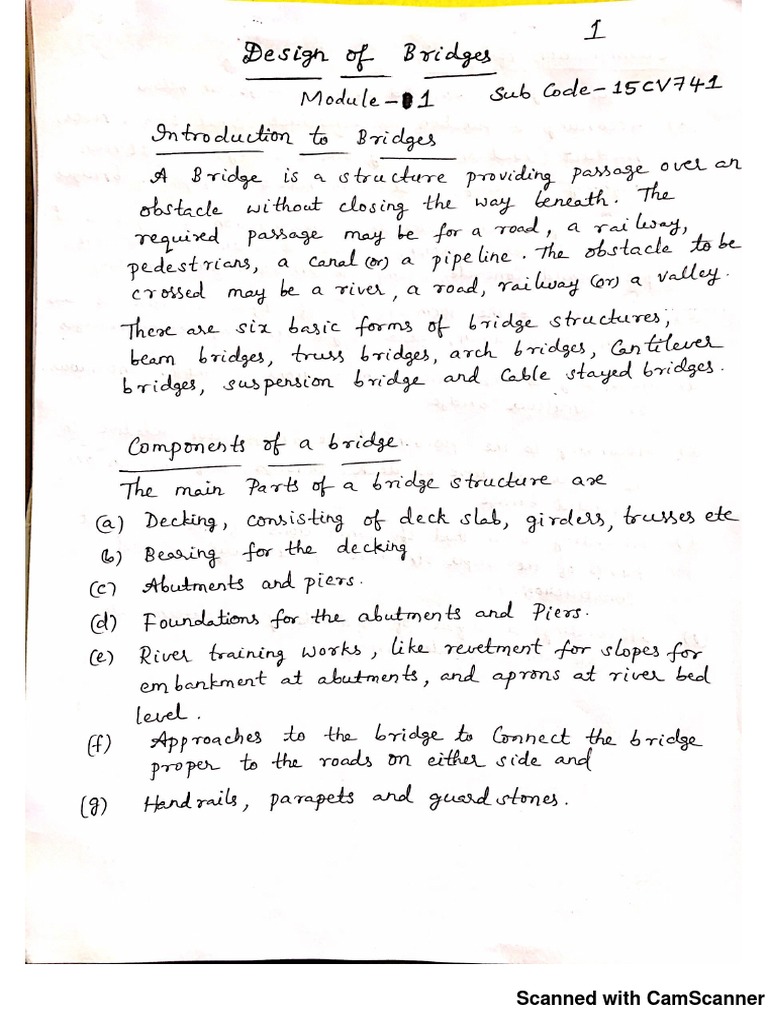 1
Design of Bridges
Module-1 Sub Code-15CV741
Introduction to Bridges
A Bridge is a structure providing passage over an
obstacle without closing the way beneath. The
required passage may be for a road, a railway,
pedestrians, a canal (or) a pipeline. The obstacle to be
crossed may be a river, a road, railway (or) a valley.
There are six basic forms of bridge structures,
beam bridges, truss bridges, arch bridges, Cantilever
bridges, suspension bridge and Cable stayed bridges.
Components of a bridge.
The main Parts of a bridge structure are
(a) Decking, consisting of deck slab, girders, trusses etc
(b) Bearing for the decking
(c) Abutments and piers.
(d) Foundations for the abutments and Piers.
(e) River training works, like revetment for slopes for
embankment at abutments, and aprons at river bed
level.
(f) Approaches to the bridge to Connect the bridge
proper to the roads on either side and
(g) Handrails, parapets and guard stones.
Scanned with CamScanner